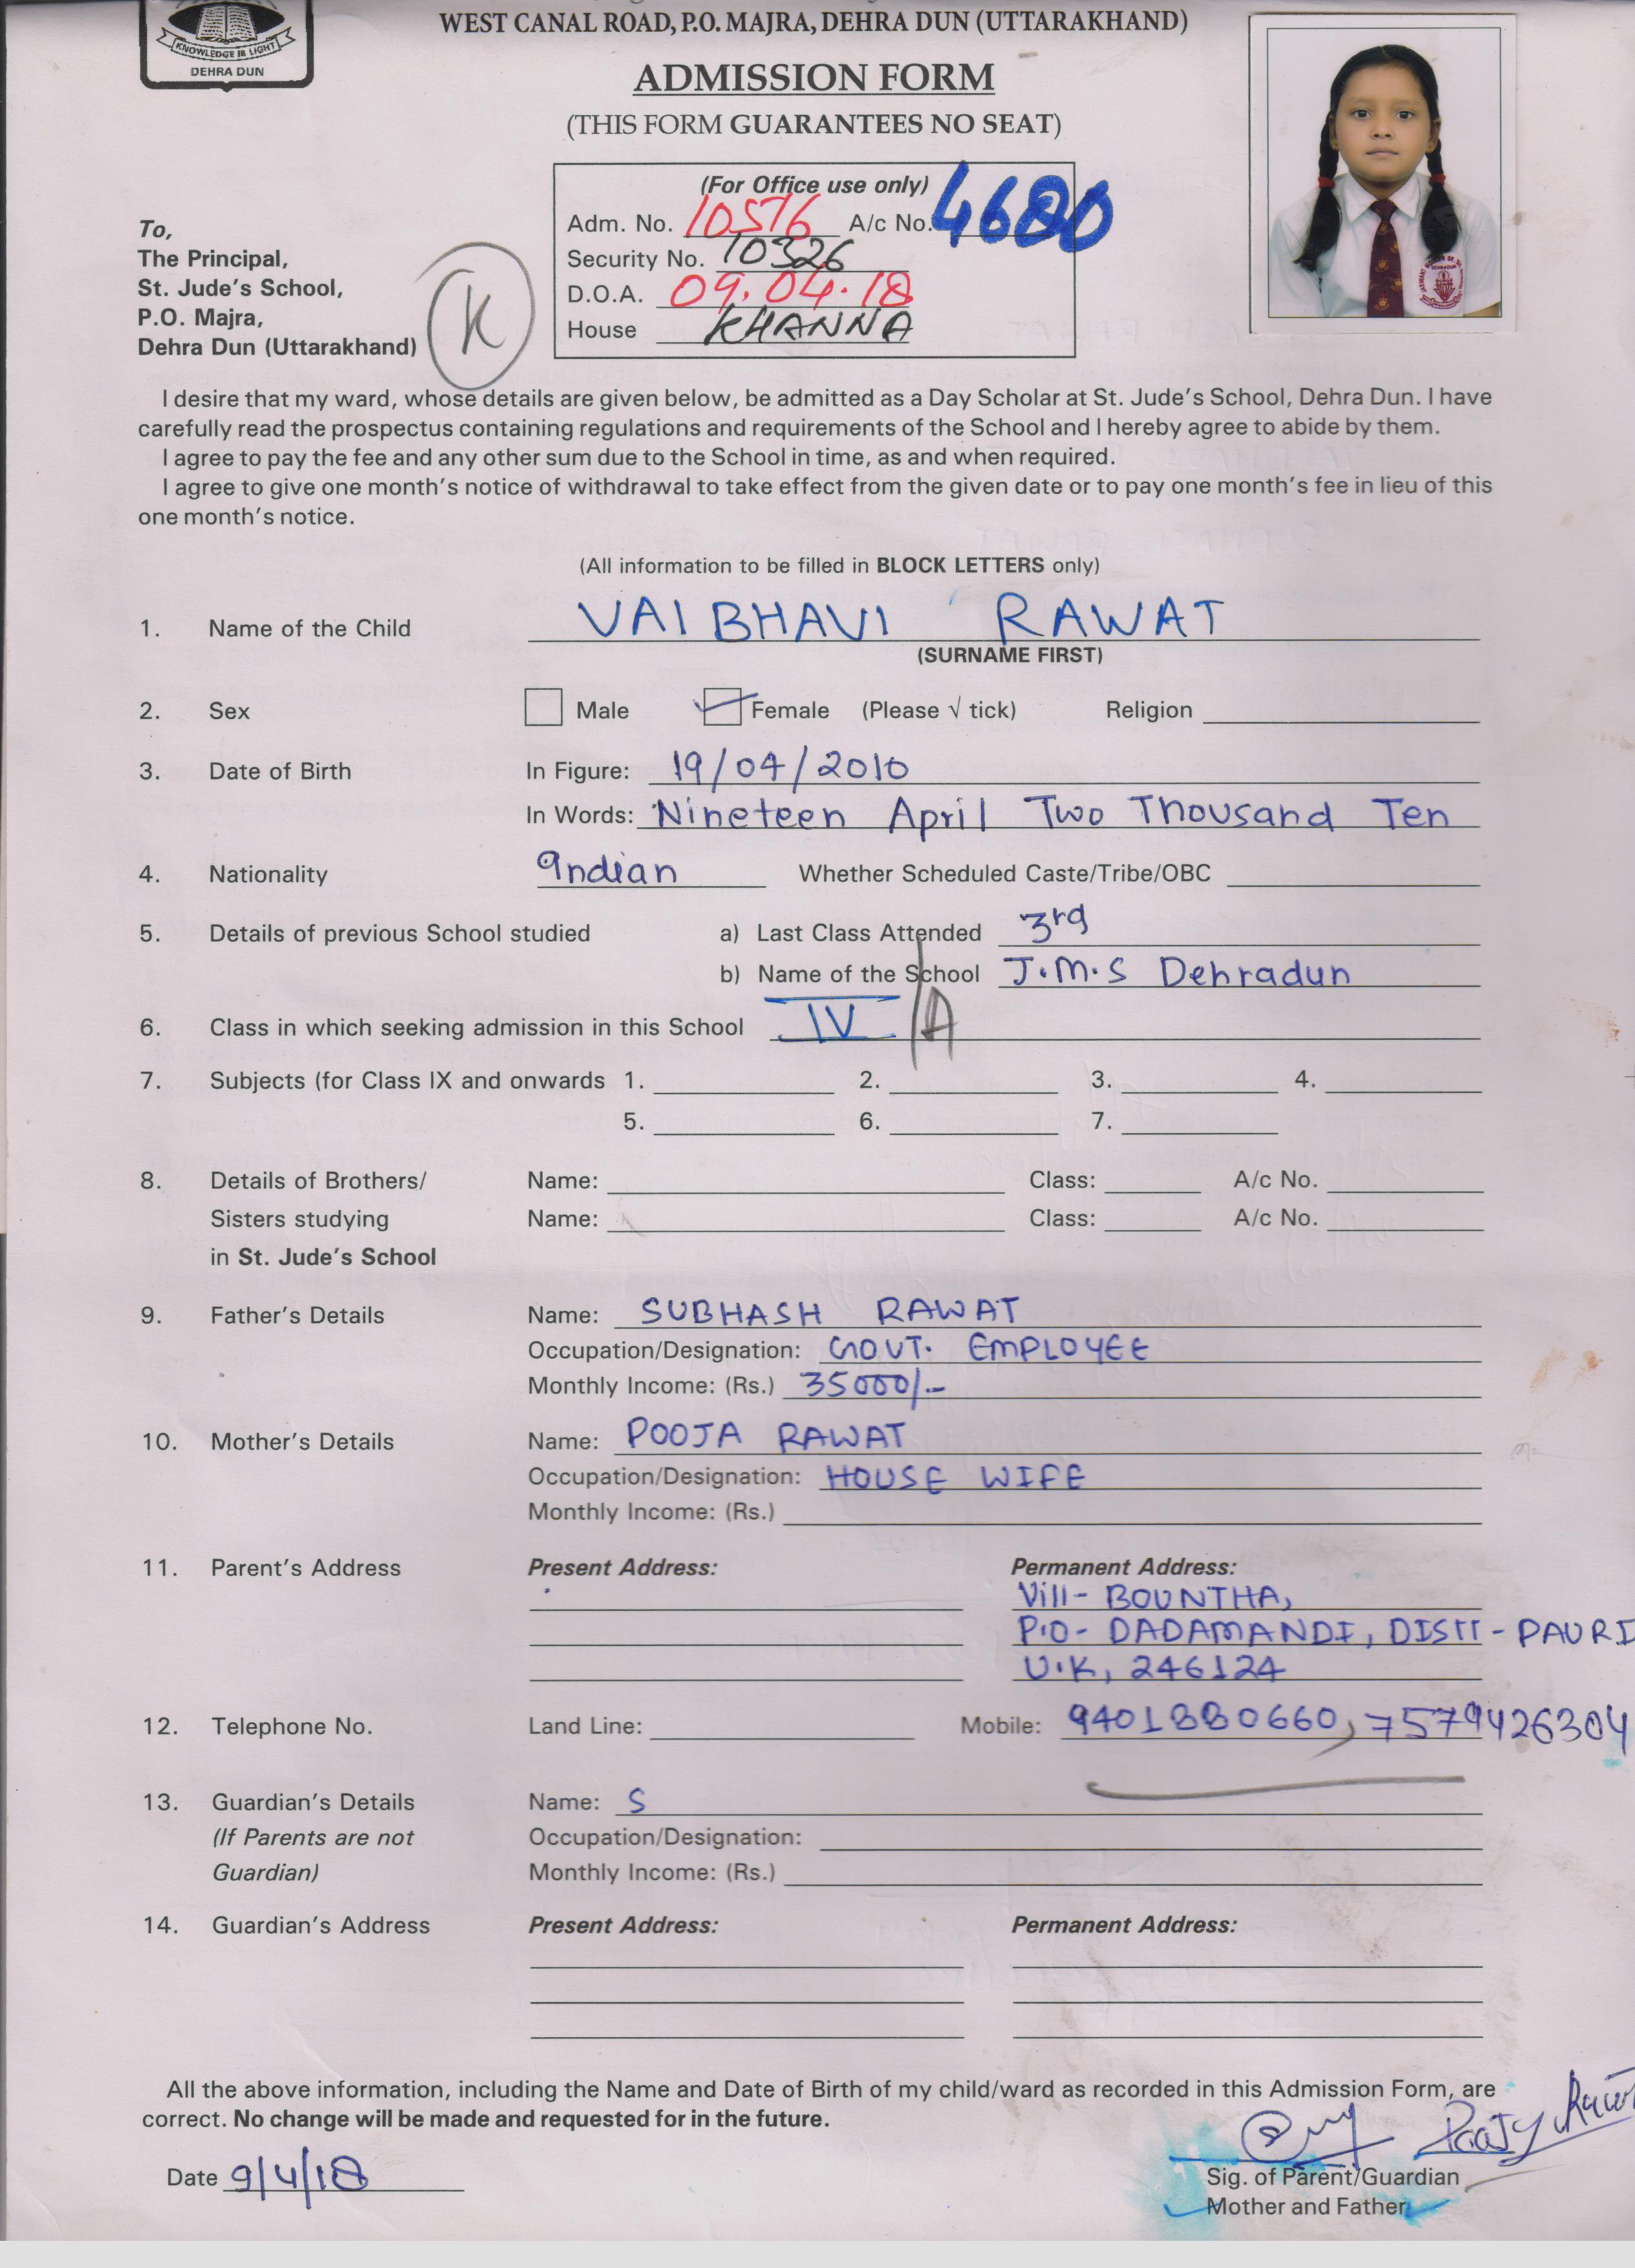 KNOWLEDGE IS LIGHT
DEHRA DUN
WEST CANAL ROAD, P.O. MAJRA, DEHRA DUN (UTTARAKHAND)
ADMISSION FORM
(THIS FORM GUARANTEES NO SEAT)
(For Office use only)
Adm. No. 10576 A/c No. 4680
Security No. 10326
D.O.A. 09.04.18
House KHANNA
To,
The Principal,
St. Jude's School,
P.O. Majra,
Dehra Dun (Uttarakhand)
K
I desire that my ward, whose details are given below, be admitted as a Day Scholar at St. Jude's School, Dehra Dun. I have
carefully read the prospectus containing regulations and requirements of the School and I hereby agree to abide by them.
I agree to pay the fee and any other sum due to the School in time, as and when required.
I agree to give one month's notice of withdrawal to take effect from the given date or to pay one month's fee in lieu of this
one month's notice.
(All information to be filled in BLOCK LETTERS only)
1. Name of the Child VAIBHAVI RAWAT
(SURNAME FIRST)
2. Sex Male Female (Please √ tick) Religion
3. Date of Birth In Figure: 19/04/2010
In Words: Nineteen April Two Thousand Ten
4. Nationality Indian Whether Scheduled Caste/Tribe/OBC
5. Details of previous School studied a) Last Class Attended 3rd
b) Name of the School J.M.S Dehradun
6. Class in which seeking admission in this School IV/A
7. Subjects (for Class IX and onwards 1. 2. 3. 4.
5. 6. 7.
8. Details of Brothers/ Name: Class: A/c No.
Sisters studying Name: Class: A/c No.
in St. Jude's School
9. Father's Details Name: SUBHASH RAWAT
Occupation/Designation: GOVT. EMPLOYEE
Monthly Income: (Rs.) 35000/-
10. Mother's Details Name: POOJA RAWAT
Occupation/Designation: HOUSE WIFE
Monthly Income: (Rs.)
11. Parent's Address Present Address: Permanent Address:
Vill- BOUNTHA,
P.O- DADAMANDI, DISTT- PAURI
U.K, 246124
12. Telephone No. Land Line: Mobile: 9401880660, 7579426304
13. Guardian's Details Name: S
(If Parents are not Occupation/Designation:
Guardian) Monthly Income: (Rs.)
14. Guardian's Address Present Address: Permanent Address:
All the above information, including the Name and Date of Birth of my child/ward as recorded in this Admission Form, are
correct. No change will be made and requested for in the future.
Date 9/4/18
Sig. of Parent/Guardian
Mother and Father